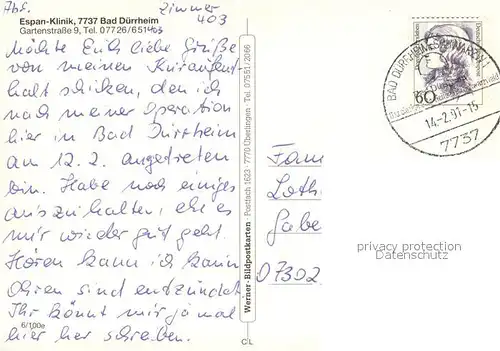 Abs. Zimmer 403
Espan-Klinik, 7737 Bad Dürrheim
Gartenstraße 9, Tel. 07726/651403
Möchte Euch liebe Grüße
von meinen Kuraufent
halt schicken, den ich
nach meiner Operation
hier in Bad Dürrheim
am 12.2. angetreten
bin. Habe noch einiges
auszuhalten, ehe es
mir wieder gut geht.
Hören kann ich kaum
Ohren sind entzündet.
Ihr könnt mir ja mal
hier her schreiben.
6/100e
Werner-Bildpostkarten · Postfach 1623 · 7770 Überlingen · Tel. 07551/2066
CL
Fam
Loth.
Gabe
O 7302
privacy protection
Datenschutz
Deutsche
60
BAD DÜRRHEIM, SCHWARZW
14-2.91-15
7737